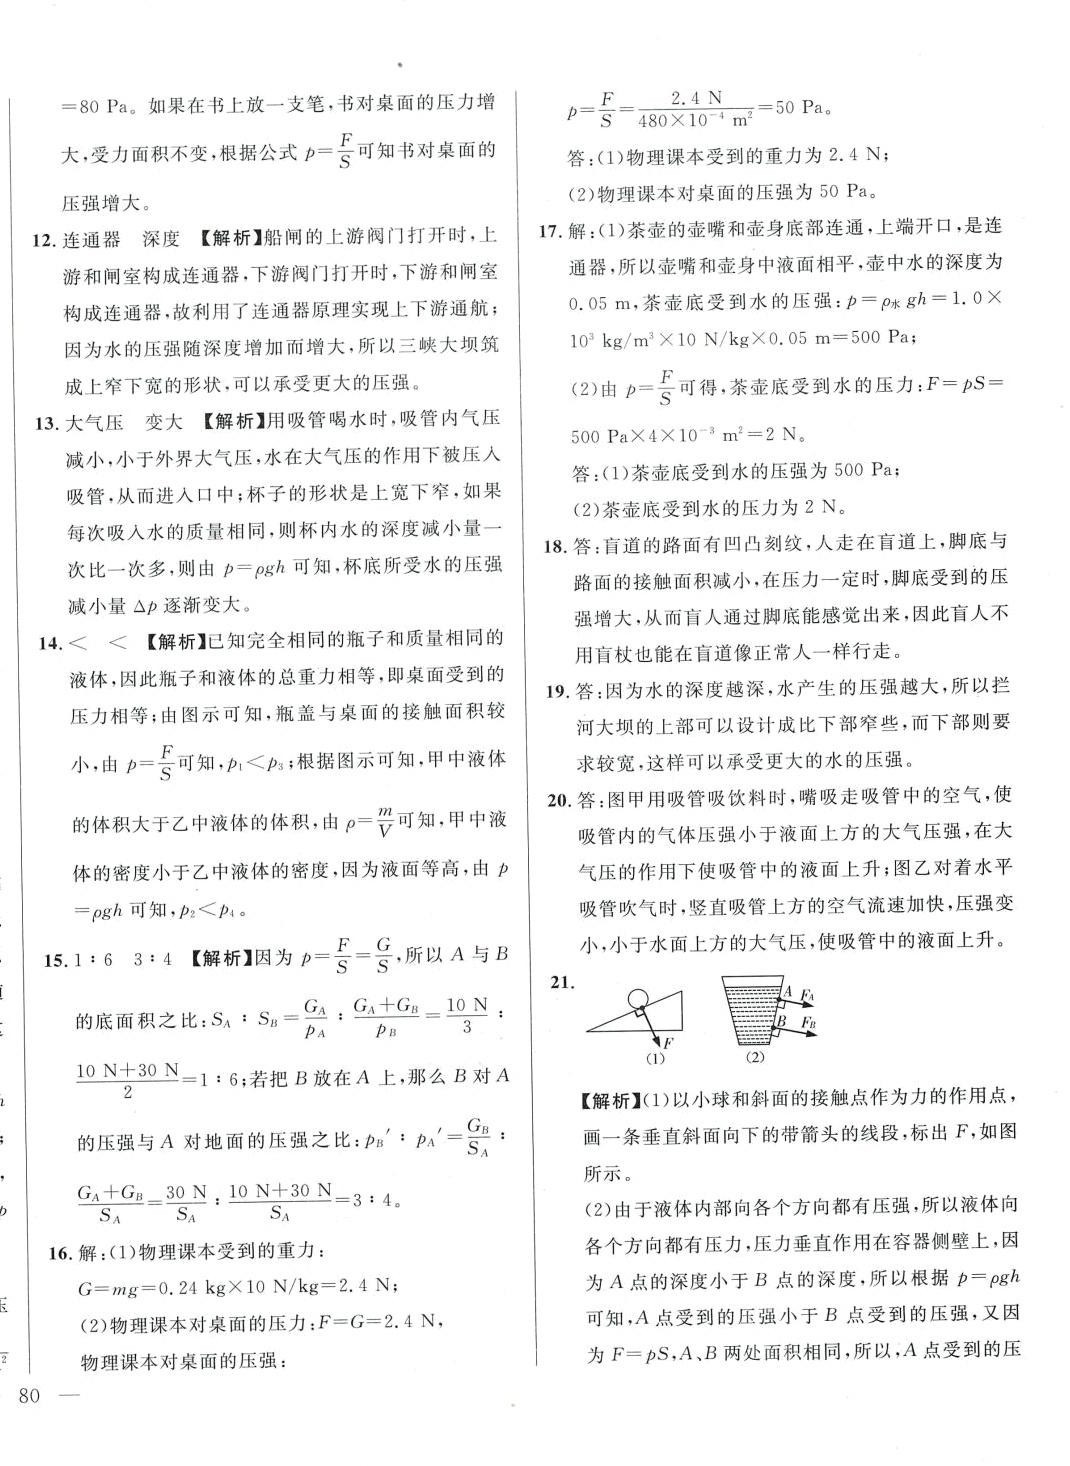 =80 Pa。如果在书上放一支笔,书对桌面的压力增
大,受力面积不变,根据公式 p=F/S可知书对桌面的
压强增大。
12. 连通器 深度 【解析】船闸的上游阀门打开时,上
游和闸室构成连通器,下游阀门打开时,下游和闸室
构成连通器,故利用了连通器原理实现上下游通航;
因为水的压强随深度增加而增大,所以三峡大坝筑
成上窄下宽的形状,可以承受更大的压强。
13. 大气压 变大 【解析】用吸管喝水时,吸管内气压
减小,小于外界大气压,水在大气压的作用下被压入
吸管,从而进入口中;杯子的形状是上宽下窄,如果
每次吸入水的质量相同,则杯内水的深度减小量一
次比一次多,则由 p=ρgh 可知,杯底所受水的压强
减小量 Δp 逐渐变大。
14. < < 【解析】已知完全相同的瓶子和质量相同的
液体,因此瓶子和液体的总重力相等,即桌面受到的
压力相等;由图示可知,瓶盖与桌面的接触面积较
小,由 p=F/S可知,p₁<p₃;根据图示可知,甲中液体
的体积大于乙中液体的体积,由 ρ=m/V可知,甲中液
体的密度小于乙中液体的密度,因为液面等高,由 p
=ρgh 可知,p₂<p₄。
15. 1∶6 3∶4 【解析】因为 p=F/S=G/S,所以 A 与 B
的底面积之比:S_A∶S_B=G_A/p_A∶(G_A+G_B)/p_B=10 N/3∶
(10 N+30 N)/2=1∶6;若把 B 放在 A 上,那么 B 对 A
的压强与 A 对地面的压强之比:p_B′∶p_A′=G_B/S_A∶
(G_A+G_B)/S_A=30 N/S_A∶(10 N+30 N)/S_A=3∶4。
16. 解:(1)物理课本受到的重力:
G=mg=0.24 kg×10 N/kg=2.4 N;
(2)物理课本对桌面的压力:F=G=2.4 N,
物理课本对桌面的压强:
80 —
p=F/S=2.4 N/(480×10⁻⁴ m²)=50 Pa。
答:(1)物理课本受到的重力为 2.4 N;
(2)物理课本对桌面的压强为 50 Pa。
17. 解:(1)茶壶的壶嘴和壶身底部连通,上端开口,是连
通器,所以壶嘴和壶身中液面相平,壶中水的深度为
0.05 m,茶壶底受到水的压强:p=ρ水gh=1.0×
10³ kg/m³×10 N/kg×0.05 m=500 Pa;
(2)由 p=F/S可得,茶壶底受到水的压力:F=pS=
500 Pa×4×10⁻³ m²=2 N。
答:(1)茶壶底受到水的压强为 500 Pa;
(2)茶壶底受到水的压力为 2 N。
18. 答:盲道的路面有凹凸刻纹,人走在盲道上,脚底与
路面的接触面积减小,在压力一定时,脚底受到的压
强增大,从而盲人通过脚底能感觉出来,因此盲人不
用盲杖也能在盲道像正常人一样行走。
19. 答:因为水的深度越深,水产生的压强越大,所以拦
河大坝的上部可以设计成比下部窄些,而下部则要
求较宽,这样可以承受更大的水的压强。
20. 答:图甲用吸管吸饮料时,嘴吸走吸管中的空气,使
吸管内的气体压强小于液面上方的大气压强,在大
气压的作用下使吸管中的液面上升;图乙对着水平
吸管吹气时,竖直吸管上方的空气流速加快,压强变
小,小于水面上方的大气压,使吸管中的液面上升。
21.
F
(1)
A F_A
B F_B
(2)
【解析】(1)以小球和斜面的接触点作为力的作用点,
画一条垂直斜面向下的带箭头的线段,标出 F,如图
所示。
(2)由于液体内部向各个方向都有压强,所以液体向
各个方向都有压力,压力垂直作用在容器侧壁上,因
为 A 点的深度小于 B 点的深度,所以根据 p=ρgh
可知,A 点受到的压强小于 B 点受到的压强,又因
为 F=pS,A、B 两处面积相同,所以,A 点受到的压